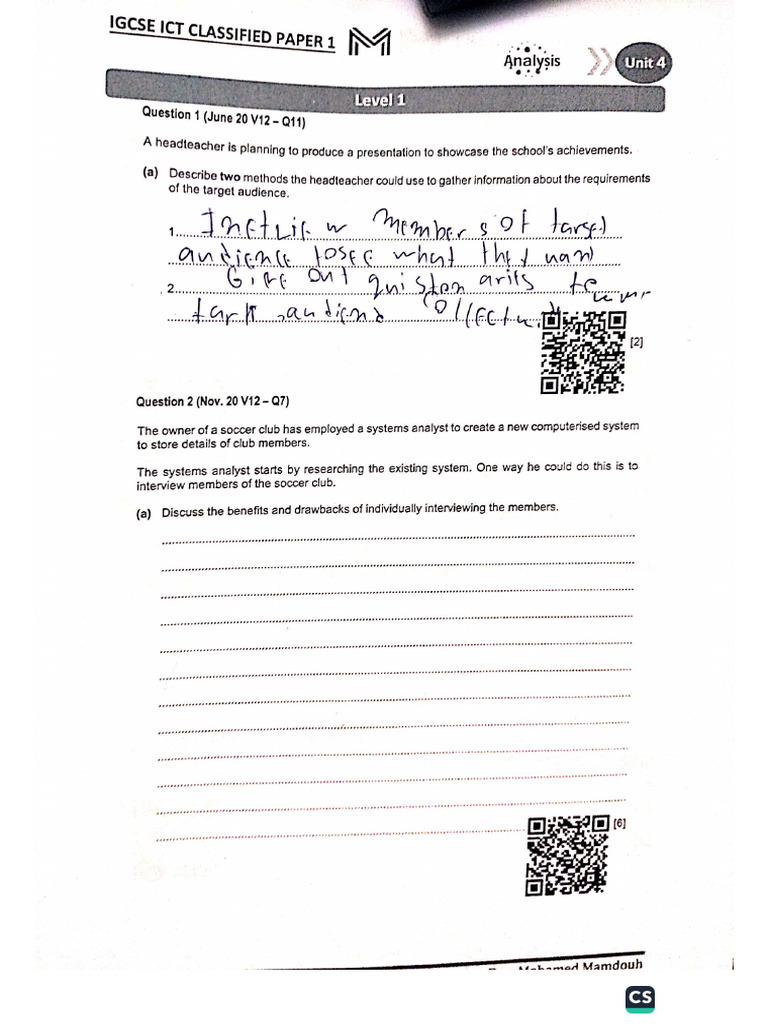 IGCSE ICT CLASSIFIED PAPER 1
Analysis
Unit 4
Level 1
Question 1 (June 20 V12 – Q11)
A headteacher is planning to produce a presentation to showcase the school's achievements.
(a) Describe two methods the headteacher could use to gather information about the requirements
of the target audience.
1. members of target
audience to see what they want
2. Give out
[2]
Question 2 (Nov. 20 V12 – Q7)
The owner of a soccer club has employed a systems analyst to create a new computerised system
to store details of club members.
The systems analyst starts by researching the existing system. One way he could do this is to
interview members of the soccer club.
(a) Discuss the benefits and drawbacks of individually interviewing the members.
[6]
Mohamed Mamdouh
CS